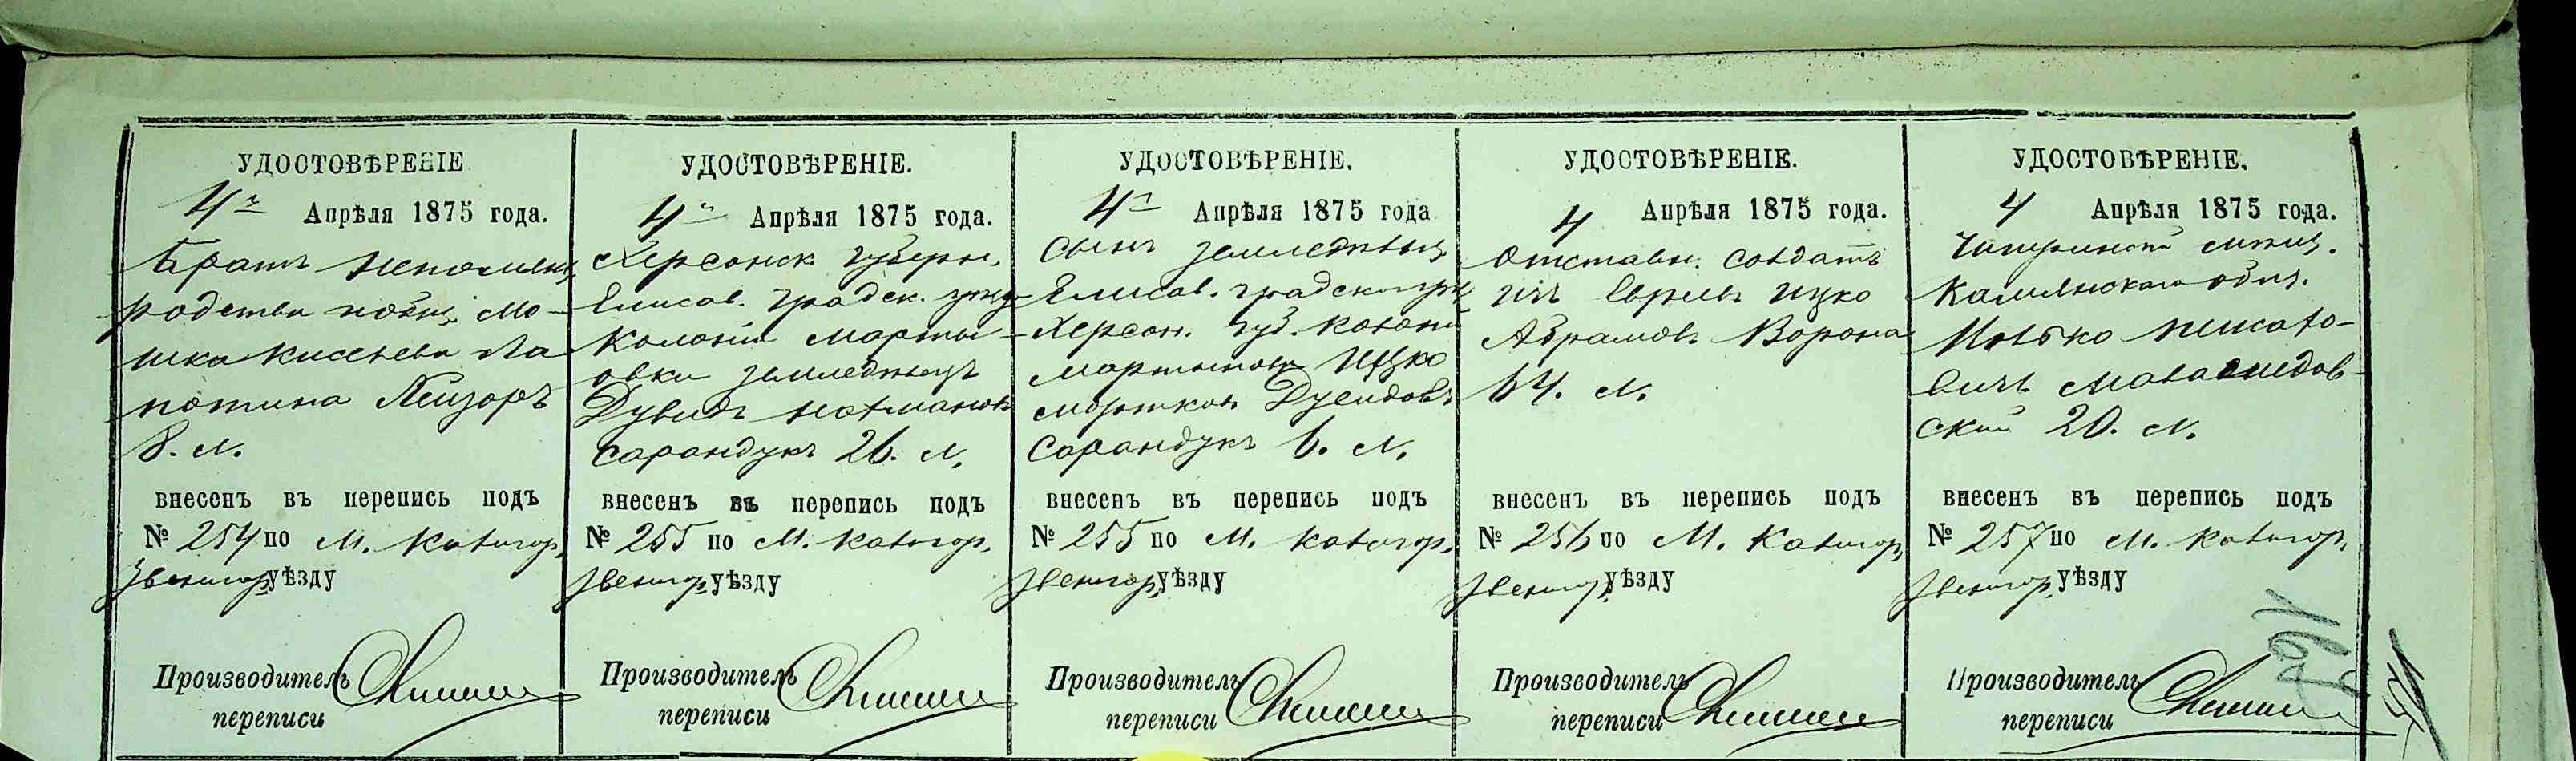 УДОСТОВѢРЕНІЕ
4 Апрѣля 1875 года.
Братъ непомнящ.
родства
шка Киселева Ла
потина Лейзоръ
8. л.
внесенъ въ перепись подъ
№ 254 по М. Катигор.
Звенигор. уѣзду
Производитель
переписи
УДОСТОВѢРЕНІЕ.
4 Апрѣля 1875 года.
Херсонск губерн.
Елисав. градск. уѣзд
Колоніи Марты-
овки земледѣлецъ
Дувидъ Нахмановъ
Сарандукъ 26. л.
внесенъ въ перепись подъ
№ 255 по М. Катигор.
Звенигор. уѣзду
Производитель
переписи
УДОСТОВѢРЕНІЕ.
4 Апрѣля 1875 года
Сынъ земледѣльц
Елисав. градскаго уѣз
Херсон. губ. колоніи
Мартыновк Ицко
Мортковъ Дувидовъ
Сарандукъ 6. л.
внесенъ въ перепись подъ
№ 255 по М. Катигор.
Звенигор. уѣзду
Производитель
переписи
УДОСТОВѢРЕНІЕ.
4 Апрѣля 1875 года.
Отставн. солдатъ
изъ Евреевъ Ицко
Абрамовъ Ворона
64. л.
внесенъ въ перепись подъ
№ 256 по М. Катигор.
Звенигор. уѣзду
Производитель
переписи
УДОСТОВѢРЕНІЕ.
4 Апрѣля 1875 года.
Чигиринскій мѣщ.
Камянскаго общ.
Мошко
вичъ
скій 20. л.
внесенъ въ перепись подъ
№ 257 по М. Катигор.
Звенигор. уѣзду
Производитель
переписи